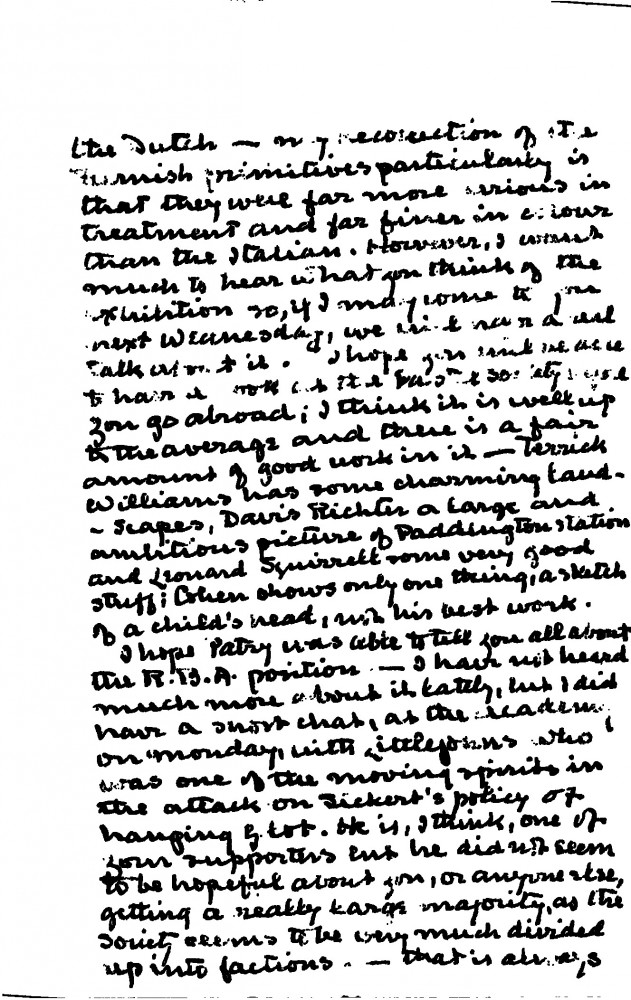 the Dutch — my recollection of the
Flemish primitives particularly is
that they were far more serious in
treatment and far finer in colour
than the Italian. However, I want
much to hear what you think of the
exhibition so, if I may come to you
next Wednesday, we will have a
talk about it. I hope you will be able
to have a look at the Pastel Society before
you go abroad; I think it is well up
to the average and there is a fair
amount of good work in it — Terrick
Williams has some charming land-
- scapes, Davis Richter a large and
ambitious picture of Paddington Station
and Leonard Squirrell some very good
stuff; Cohen shows only one thing, a sketch
of a child's head, not his best work.
I hope Patry was able to tell you all about
the R.B.A. position — I have not heard
much more about it lately, but I did
have a short chat, at the Academy
on Monday, with Littlejohns who
was one of the moving spirits in
the attack on Sickert's policy of
hanging & lot. He is, I think, one of
your supporters but he did not seem
to be hopeful about you, or anyone else,
getting a really large majority, as the
Society seems to be very much divided
up into factions. — that is always